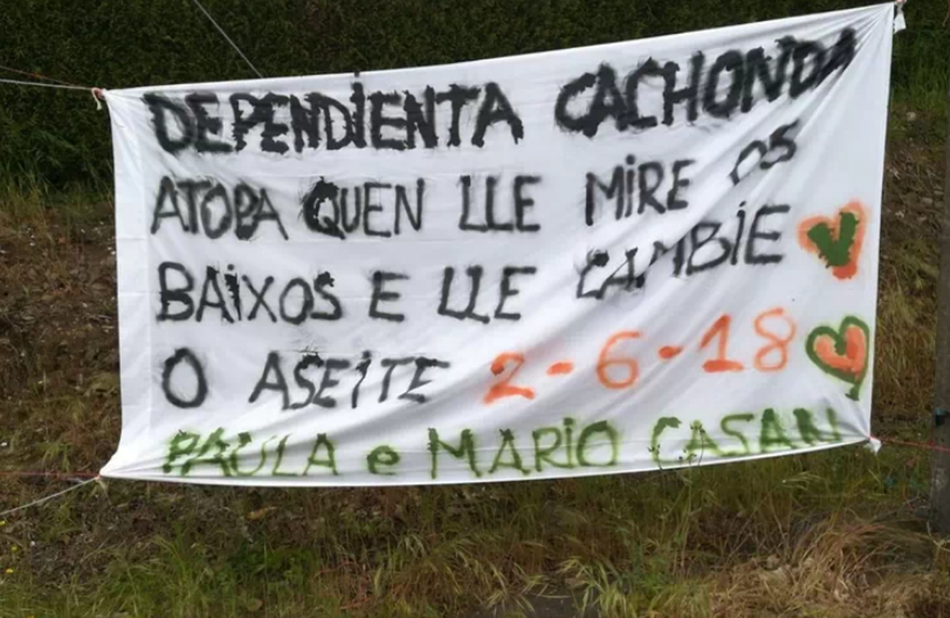 DEPENDIENTA CACHONDA
ATOPA QUEN LLE MIRE OS
BAIXOS E LLE CAMBIE
O ASEITE 2-6-18
PAULA e MARIO CASAN